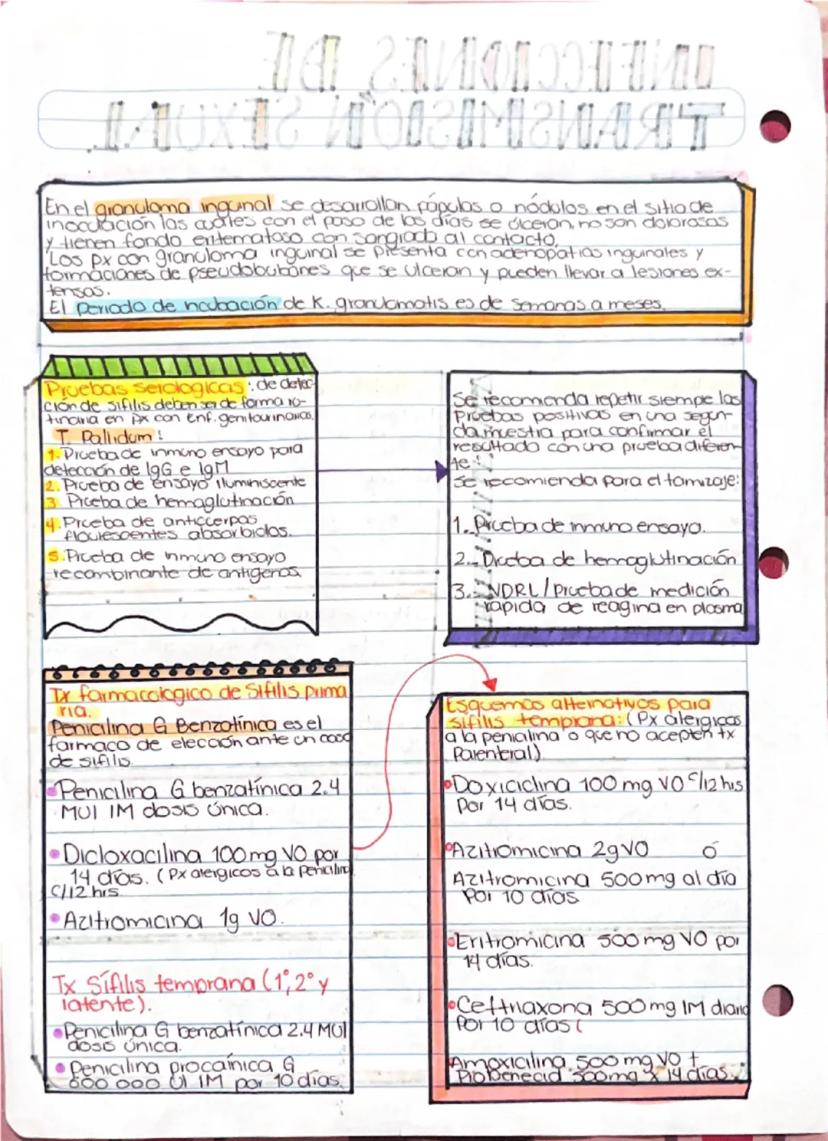 INFECCIONES DE
TRANSMISIÓN SEXUAL
En el granuloma inguinal se desarrollan pápulas o nódulos en el sitio de
inoculación las cuales con el paso de los días se ulceran, no son dolorosas
y tienen fondo eritematoso con sangrado al contacto.
Los px con granuloma inguinal se presenta con adenopatías inguinales y
formaciones de pseudobubones que se ulceran y pueden llevar a lesiones ex-
tensas.
El periodo de incubación de K. granulomatis es de semanas a meses.
Pruebas serologicas: de detec-
ción de sífilis deben ser de forma ru-
tinaria en px con Enf. genitourinarios.
T. Pallidum:
1. Prueba de inmuno ensayo para
detección de IgG e IgM
2. Prueba de ensayo iluminiscente
3. Prueba de hemaglutinación
4. Prueba de anticuerpos
flourescentes absorbidos.
5. Prueba de inmuno ensayo
recombinante de antígenos.
Se recomienda repetir siempre las
Pruebas positivas en una segun-
da muestra para confirmar el
resultado con una prueba diferen-
te.
Se recomienda para el tamizaje:
1. Prueba de inmuno ensayo.
2. Prueba de hemaglutinación
3. VDRL/Prueba de medición
rapida de reagina en plasma
Tx farmacologico de Sífilis prima
ria.
Penicilina G Benzatínica es el
farmaco de elección ante un caso
de sífilis
• Penicilina G benzatínica 2.4
MUI IM dosis única.
• Dicloxacilina 100 mg VO por
14 días. (Px alergicos a la penicilina
c/12 hrs
• Azitromicina 1g VO.
Tx Sífilis temprana (1°, 2° y
latente).
• Penicilina G benzatínica 2.4 MUI
dosis única.
• Penicilina procaínica G
600 000 UI IM por 10 días.
Esquemas alternativos para
sífilis temprana: (Px alergicos
a la penicilina o que no acepten tx
Parenteral)
• Doxiciclina 100 mg VO c/12 hrs
Por 14 días.
• Azitromicina 2g VO ó
Azitromicina 500 mg al día
Por 10 días
• Eritromicina 500 mg VO por
14 días.
• Ceftriaxona 500 mg IM diario
Por 10 días (
Amoxicilina 500 mg VO +
Probenecid 500mg x 14 días.